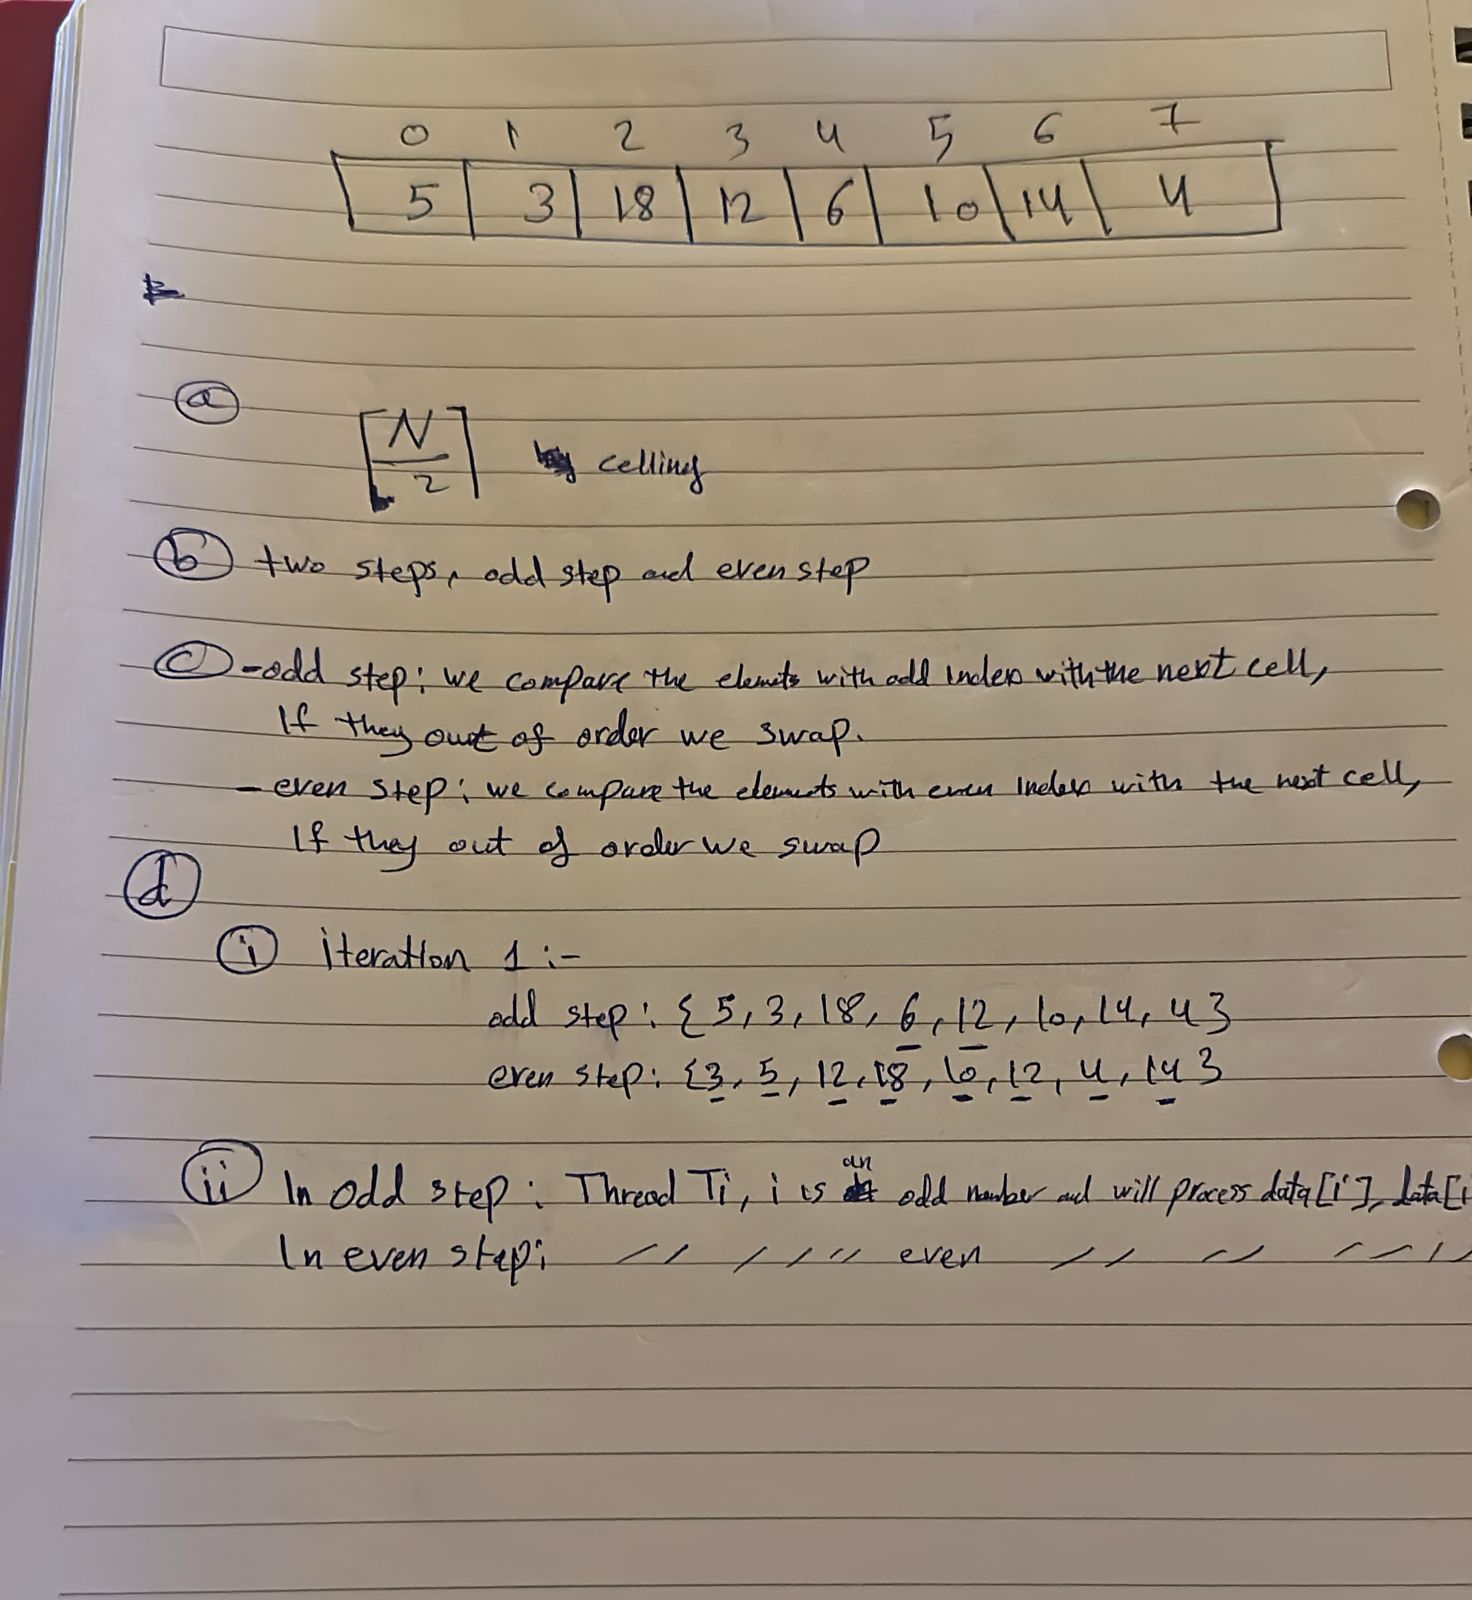 0 1 2 3 4 5 6 7
5 3 18 12 6 10 14 4
a
⌈N/2⌉ celling
b two steps, odd step and even step
c -odd step: we compare the elements with odd index with the next cell,
If they out of order we swap.
- even step: we compare the elements with even index with the next cell,
If they out of order we swap
d
i iteration 1 :-
odd step: {5, 3, 18, 6, 12, 10, 14, 4}
even step: {3, 5, 12, 18, 10, 12, 4, 14}
ii In odd step: Thread Ti, i is an odd number and will process data[i], data[i
In even step: // / / // even // // // //